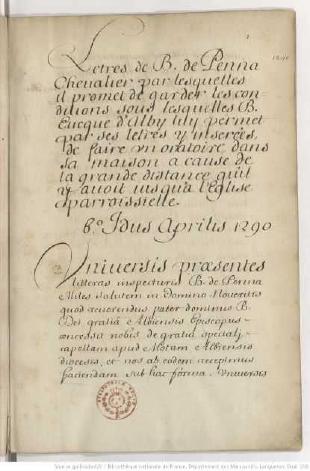 1
1290
Letres de B. de Penna
Chevalier par lesquelles
il promet de garder les con
ditions sous lesquelles B.
Euęque d'Alby luy permet
par ses letres y inserées,
de faire vn oratoire dans
sa maison a cause de
la grande distance qu'il
y auoit iusqu'a l'eglise
parroissielle.
6.º Idus Aprilis 1290
Vniuersis præsentes
litteras inspecturis B. de Penna
Miles salutem in Domino Noueritis
quod reuerendus pater dominus B.
Dei gratiâ Albiensis Episcopus
concessit nobis de gratiâ speciali,
capellam apud Motam Albiensis
diocesis, et nos ab eodem recepimus
faciendam sub hac formâ. Vniuersis
Source gallica.bnf.fr / Bibliothèque nationale de France. Département des Manuscrits. Languedoc Doat 108